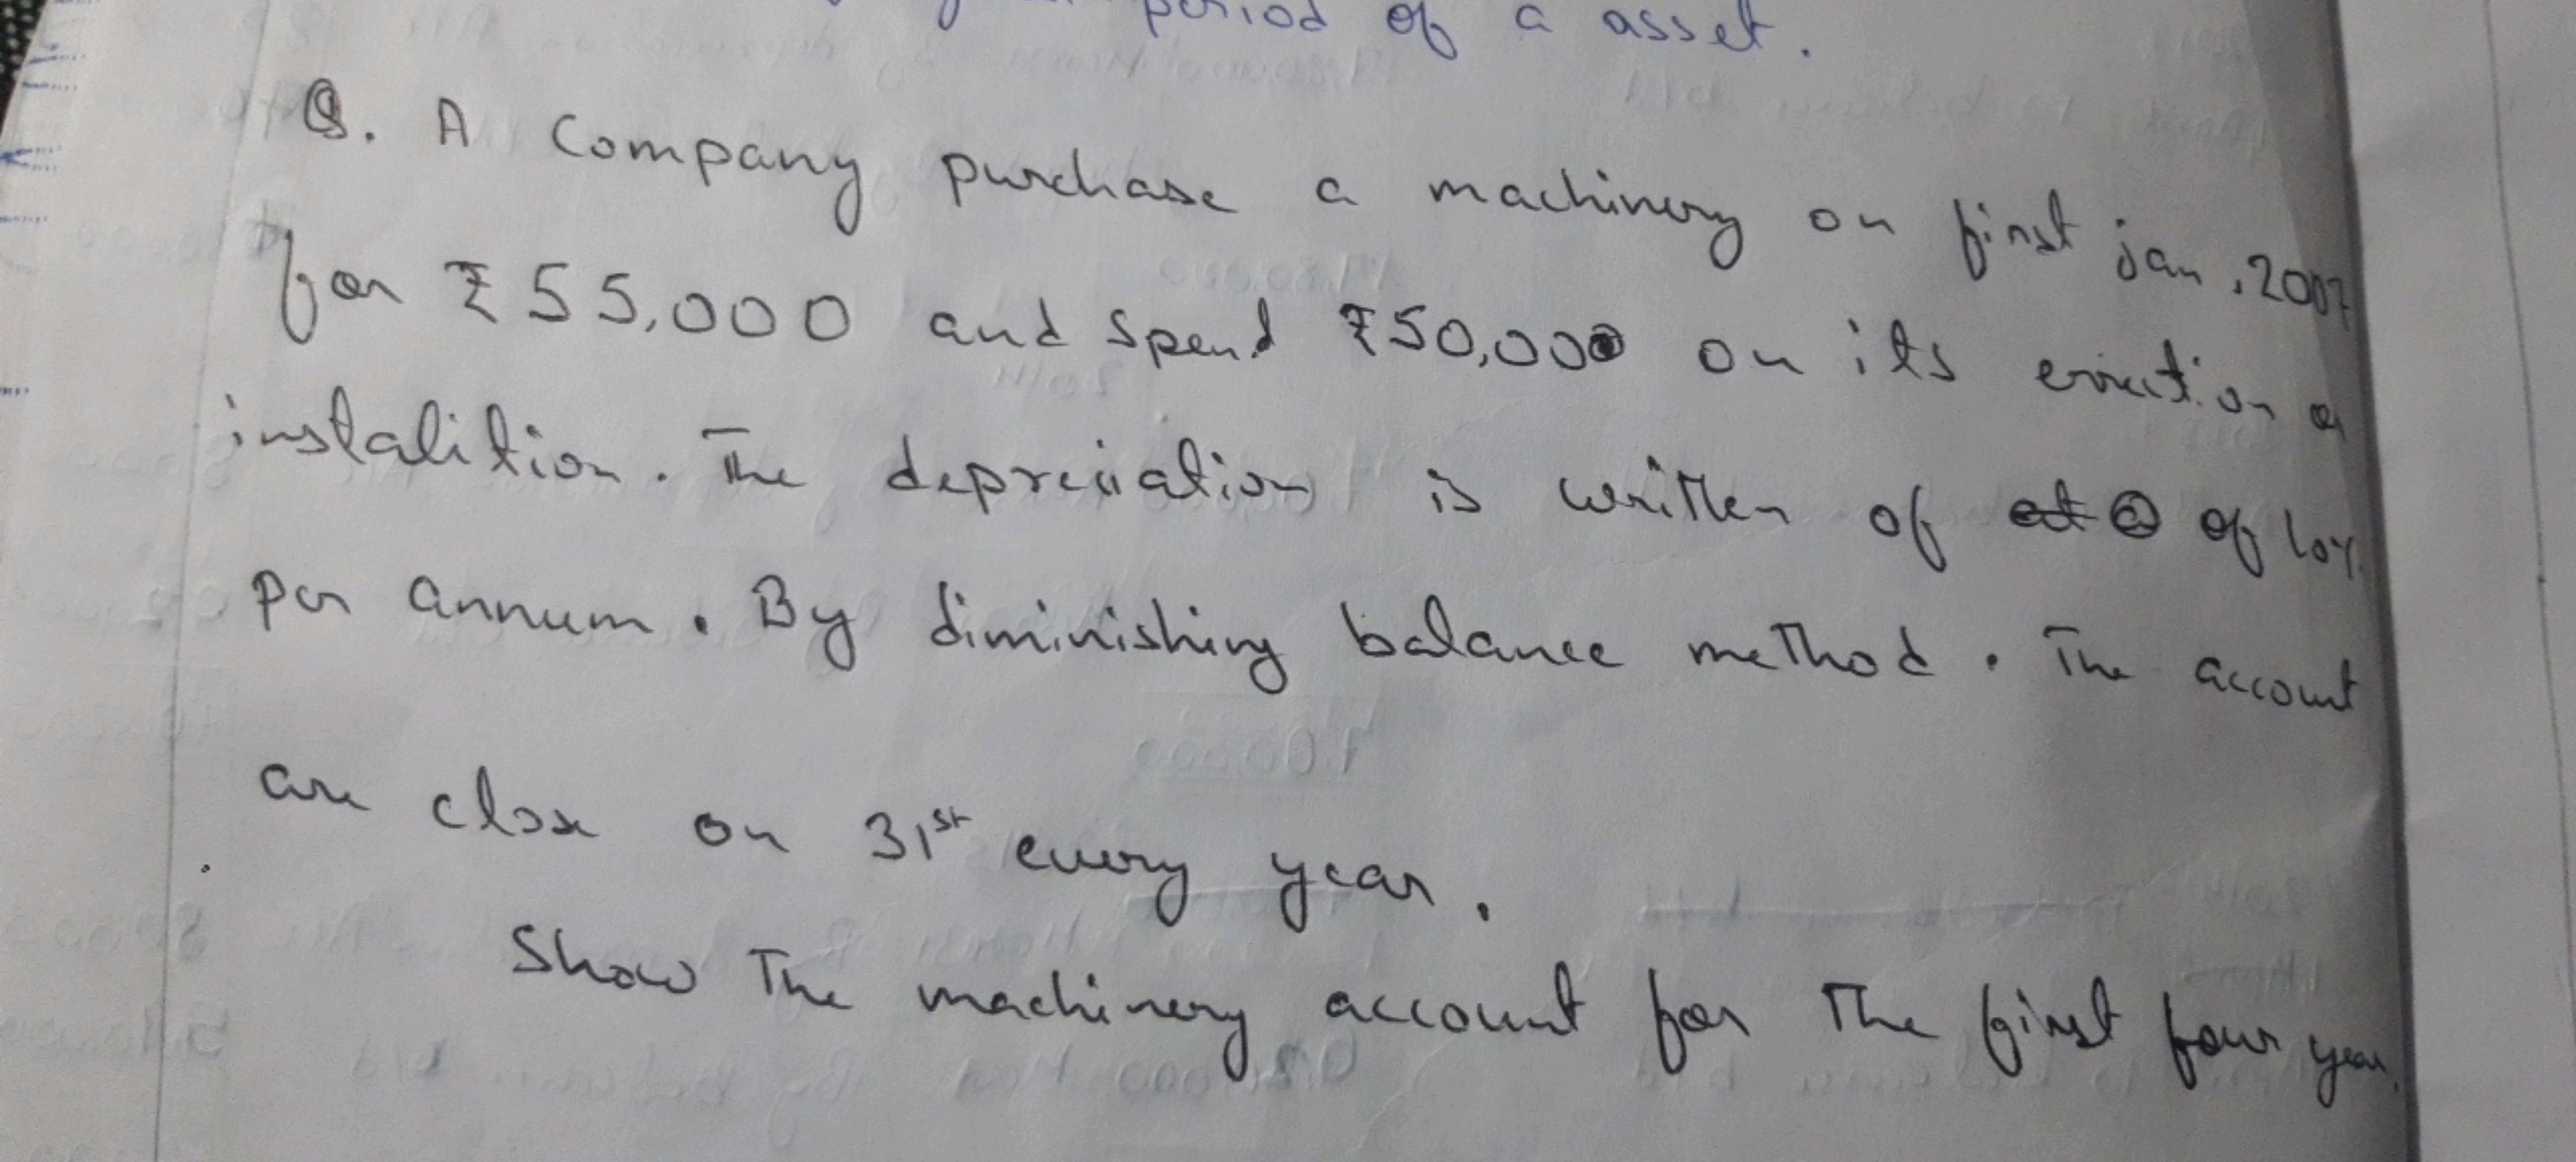 period of a asset.
Q. A Company purchase a machinery on first jan, 2007
for ₹55,000 and spend ₹50,000 on its erection
instalition. The depreciation is written of of 10%
per annum. By diminishing balance method. The account
are close on 31st every year.
Show The machinery account for The first four year.